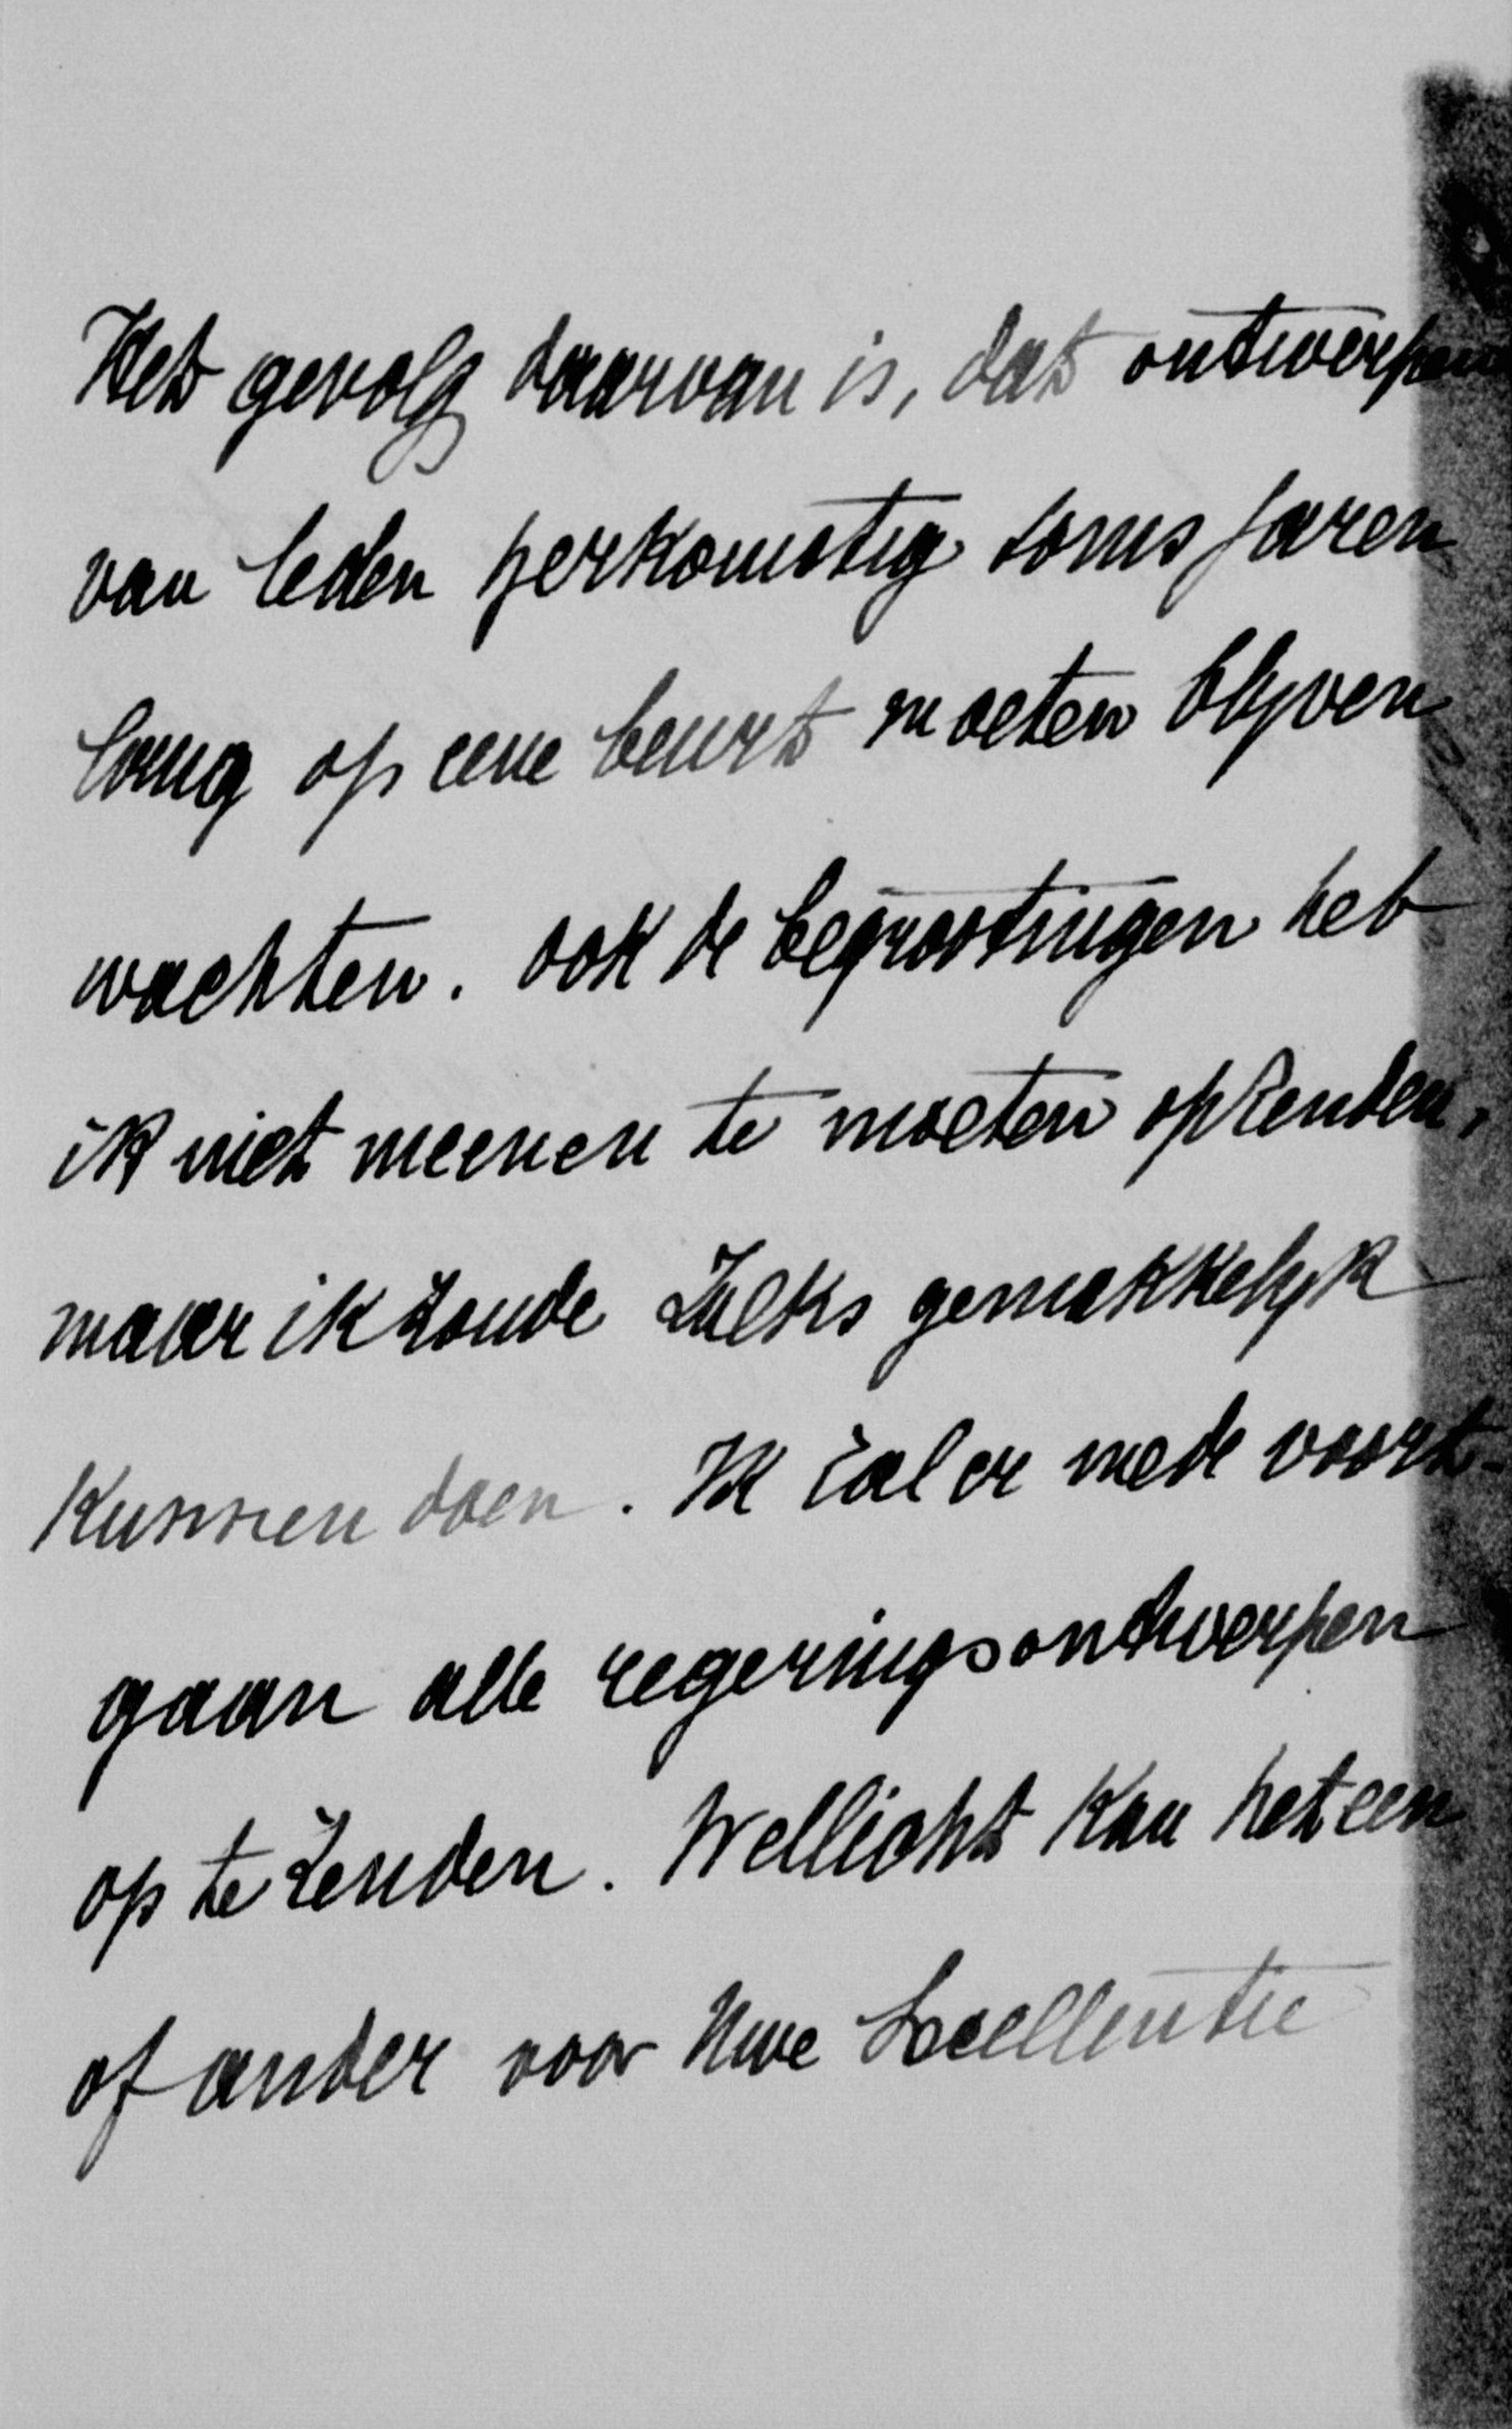 Het gevolg daarvan is, dat ontwerpen
van leden herkomstig soms jaren
lang op eene beurt moeten blijven
wachten. ook de begrootingen heb
ik niet meenen te moeten opzenden,
maar ik zoude zulks gemakkelijk
kunnen doen. Ik zal er mede voort-
gaan alle regeringsontwerpen
op te zenden. Wellicht kan het een
of ander voor Uwe Excellentie